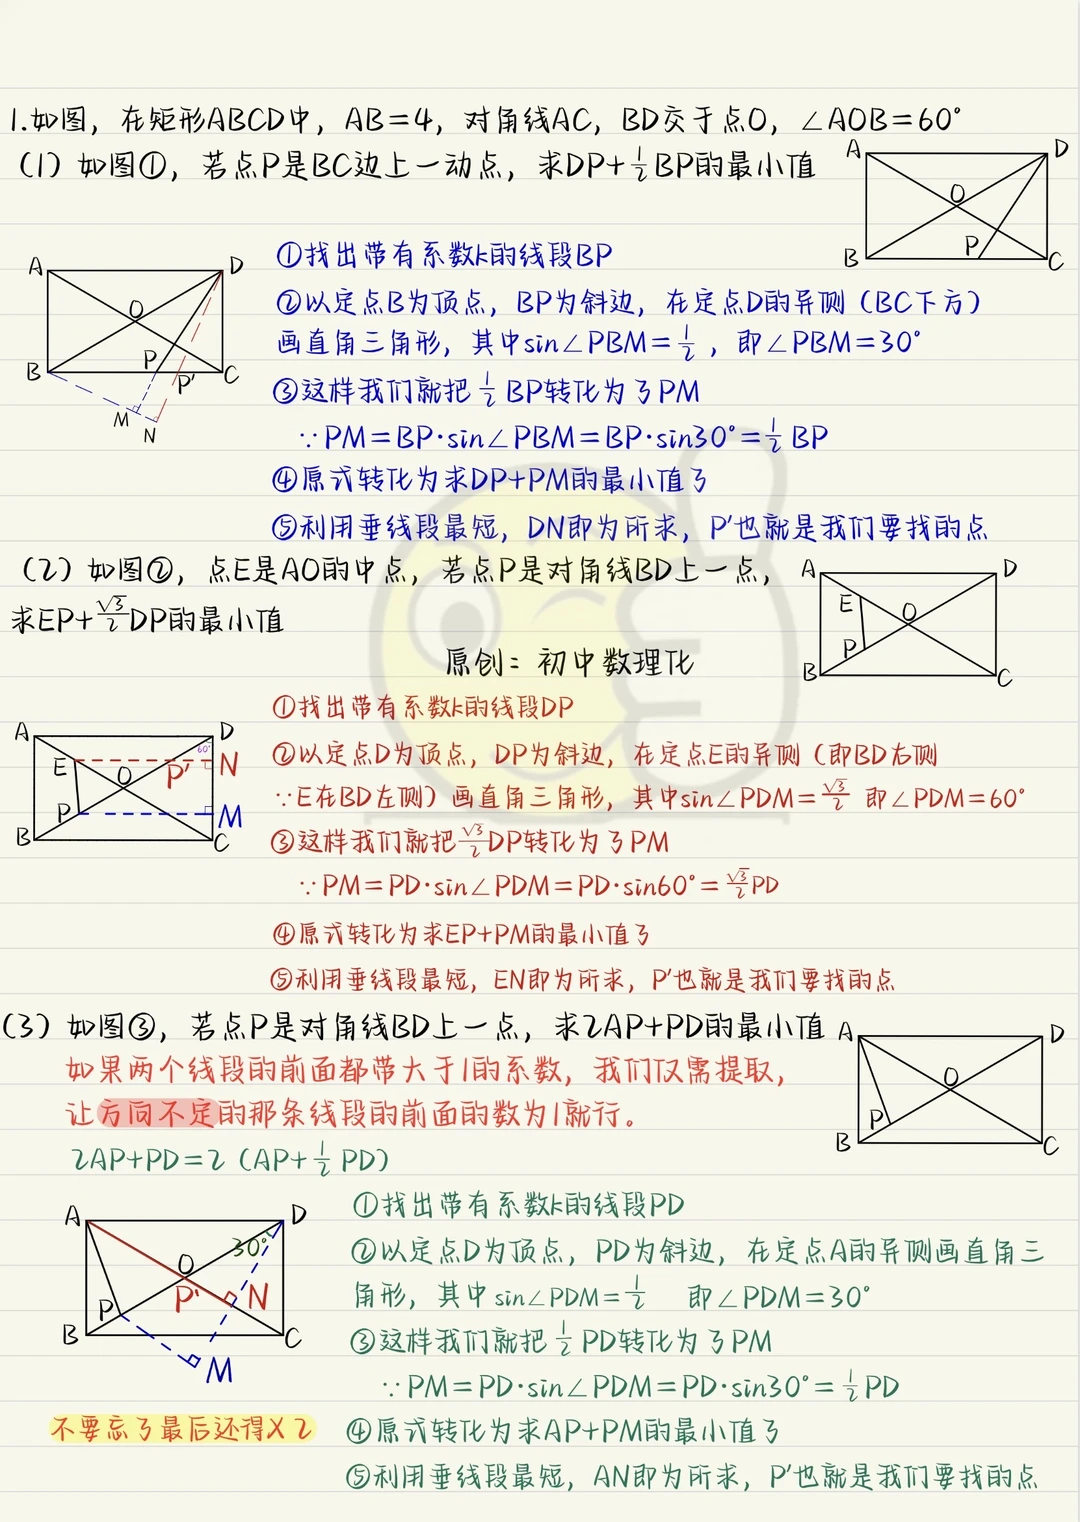 1.如图，在矩形ABCD中，AB=4，对角线AC，BD交于点O，∠AOB=60°
（1）如图①，若点P是BC边上一动点，求DP+1/2BP的最小值
A D
O
B P C
A D
O
B P P' C
M N
①找出带有系数k的线段BP
②以定点B为顶点，BP为斜边，在定点D的异侧（BC下方）
画直角三角形，其中sin∠PBM=1/2，即∠PBM=30°
③这样我们就把1/2BP转化为了PM
∵PM=BP·sin∠PBM=BP·sin30°=1/2BP
④原式转化为求DP+PM的最小值了
⑤利用垂线段最短，DN即为所求，P'也就是我们要找的点
（2）如图②，点E是AO的中点，若点P是对角线BD上一点，
求EP+√3/2DP的最小值
A D
E O
P
B C
原创：初中数理化
A D
60°
E O P' N
P M
B C
①找出带有系数k的线段DP
②以定点D为顶点，DP为斜边，在定点E的异侧（即BD右侧
∵E在BD左侧）画直角三角形，其中sin∠PDM=√3/2 即∠PDM=60°
③这样我们就把√3/2DP转化为了PM
∵PM=PD·sin∠PDM=PD·sin60°=√3/2PD
④原式转化为求EP+PM的最小值了
⑤利用垂线段最短，EN即为所求，P'也就是我们要找的点
（3）如图③，若点P是对角线BD上一点，求2AP+PD的最小值
A D
O
P
B C
如果两个线段的前面都带大于1的系数，我们仅需提取，
让方向不定的那条线段的前面的数为1就行。
2AP+PD=2（AP+1/2PD）
A D
30°
O
P P' N
B C
M
①找出带有系数k的线段PD
②以定点D为顶点，PD为斜边，在定点A的异侧画直角三
角形，其中sin∠PDM=1/2 即∠PDM=30°
③这样我们就把1/2PD转化为了PM
∵PM=PD·sin∠PDM=PD·sin30°=1/2PD
不要忘了最后还得X2
④原式转化为求AP+PM的最小值了
⑤利用垂线段最短，AN即为所求，P'也就是我们要找的点